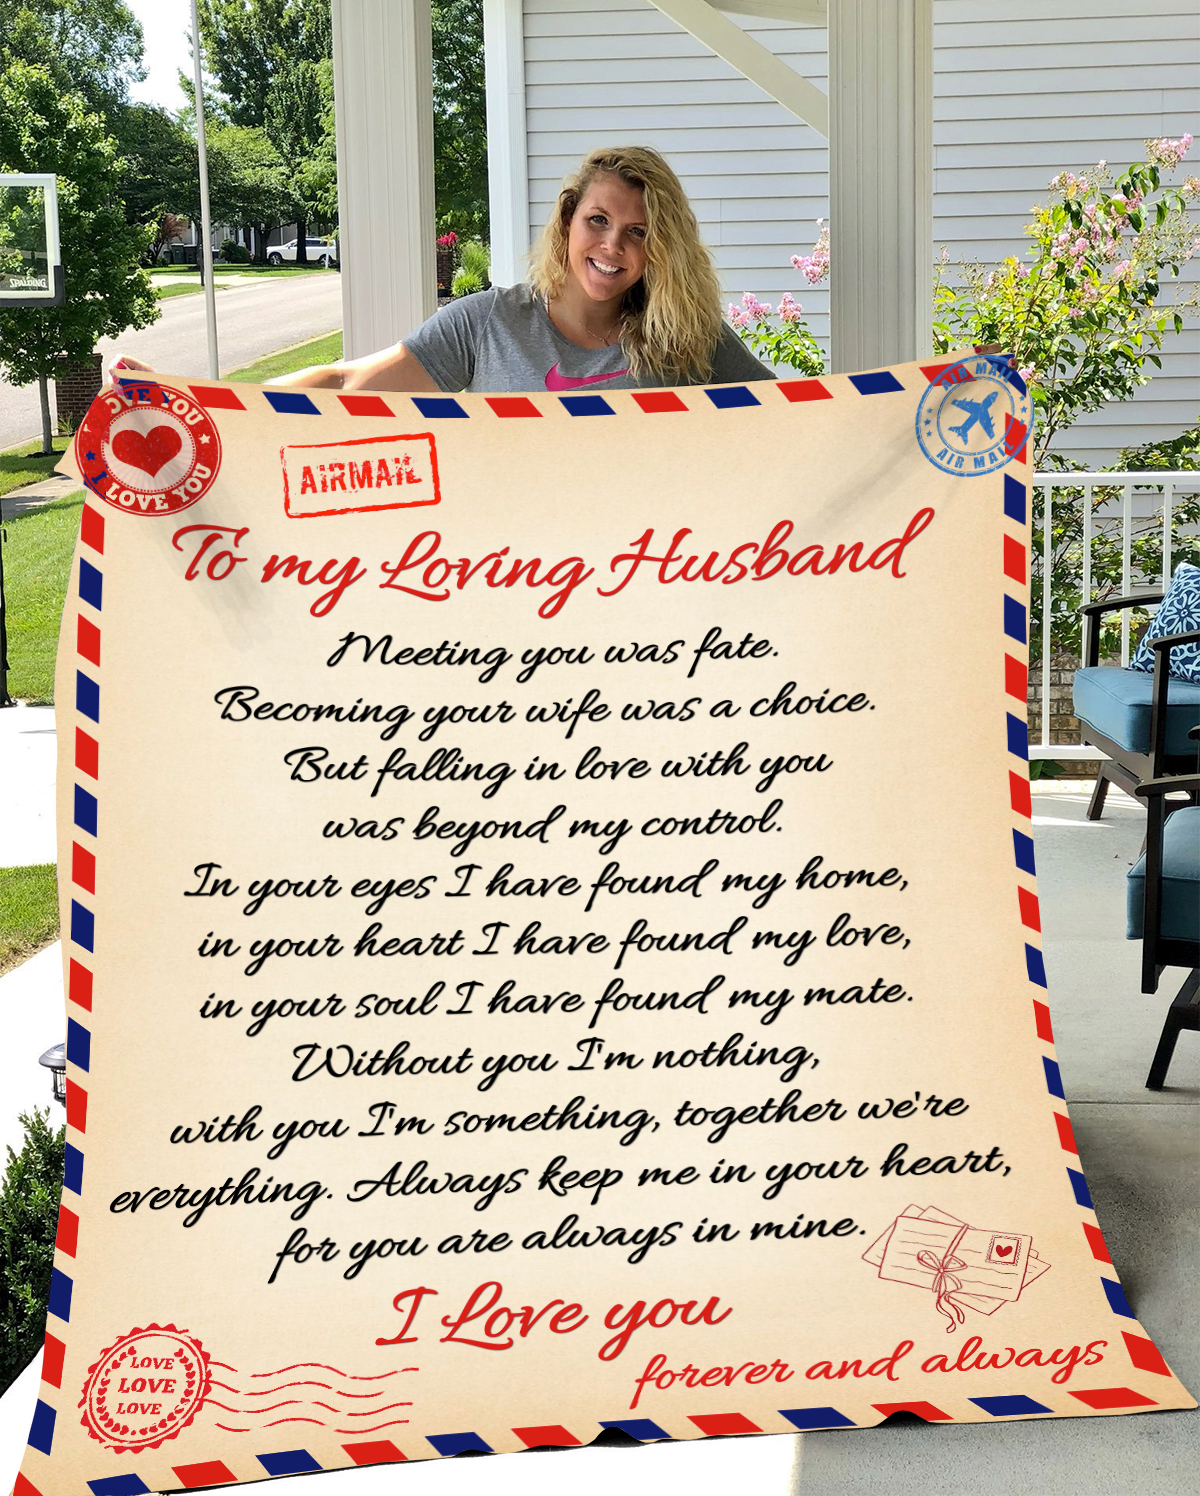 SPALDING
LOVE YOU
I LOVE YOU
AIRMAIL
AIR MAIL
AIR MAIL
To my Loving Husband
Meeting you was fate.
Becoming your wife was a choice.
But falling in love with you
was beyond my control.
In your eyes I have found my home,
in your heart I have found my love,
in your soul I have found my mate.
Without you I'm nothing,
with you I'm something, together we're
everything. Always keep me in your heart,
for you are always in mine.
I Love you
forever and always
LOVE
LOVE
LOVE